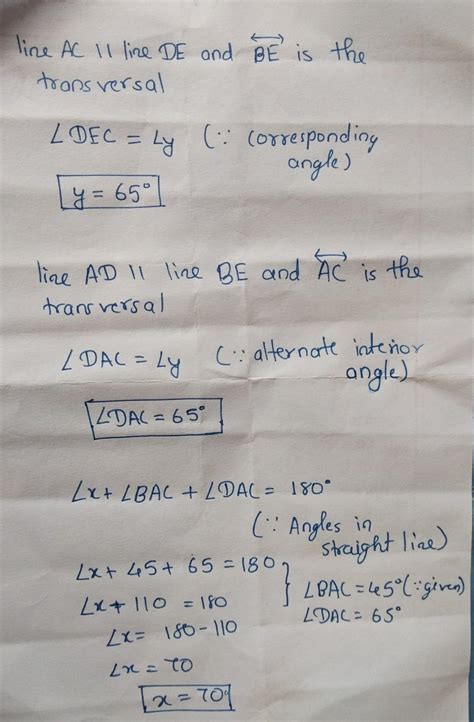 line AC || line DE and BE is the
transversal
∠DEC = ∠y (∵ corresponding
angle)
y = 65°
line AD || line BE and AC is the
transversal
∠DAC = ∠y (∵ alternate interior
angle)
∠DAC = 65°
∠x + ∠BAC + ∠DAC = 180°
(∵ Angles in
straight line)
∠x + 45 + 65 = 180
∠x + 110 = 180
∠x = 180 - 110
∠x = 70
x = 70°
} ∠BAC = 45° (∵ given)
∠DAC = 65°